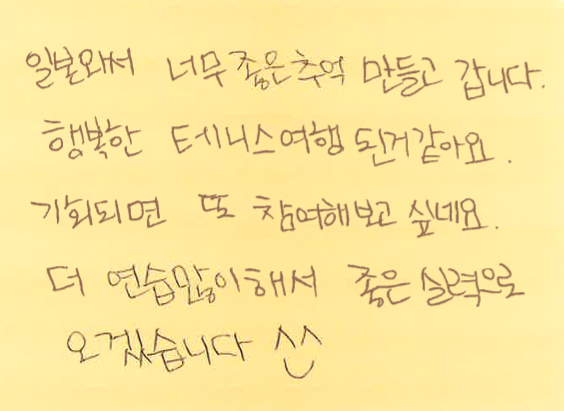 일본와서 너무 좋은 추억 만들고 갑니다.
행복한 테니스여행 된거같아요.
기회되면 또 참여해보고 싶네요.
더 연습많이해서 좋은 실력으로
오겠습니다 ^^